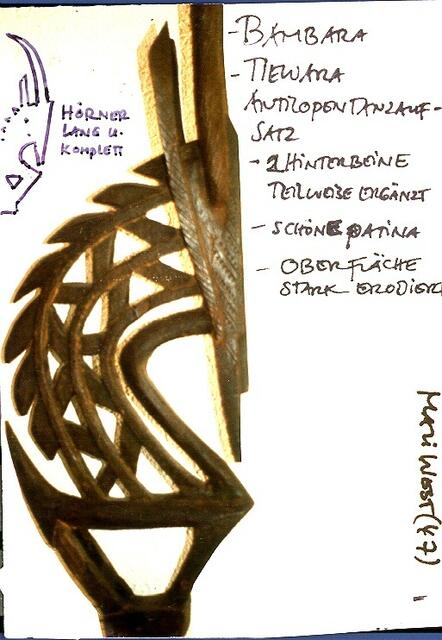 HÖRNER
LANG U.
KOMPLETT
- BAMBARA
- TIEWARA
ANTILOPENTANZAUF-
SATZ
- 2 HINTERBEINE
TEILWEISE ERGÄNZT
- SCHÖNE PATINA
- OBERFLÄCHE
STARK ERODIERT
MALI WEST (47)